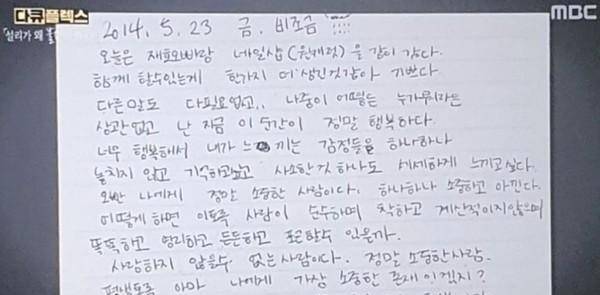 다큐플렉스
MBC
설리가 왜 불
2014. 5. 23 금. 비조금
오늘은 재효오빠랑 네일샵 (원캐럿)을 같이 갔다.
함께 할수있는게 한가지 더 생긴것같아 기쁘다
다른말도 다필요없고,, 나중이 어떻든 누가뭐라든
상관없고 난 지금 이 순간이 정말 행복하다.
너무 행복해서 내가 느끼는 감정들을 하나하나
놓치지 않고 기억하고싶고 사소한것 하나도 세세하게 느끼고싶다.
오빤 나에게 정말 소중한 사람이다. 하나하나 소중하고 아낀다.
어떻게 하면 이토록 사람이 순수하며 착하고 계산적이지않으며
똑똑하고 영리하고 든든하고 포근할수 있을까.
사랑하지 않을수 없는 사람이다. 정말 소중한사람.
평생토록 아마 나에게 가장 소중한 존재이겠지?